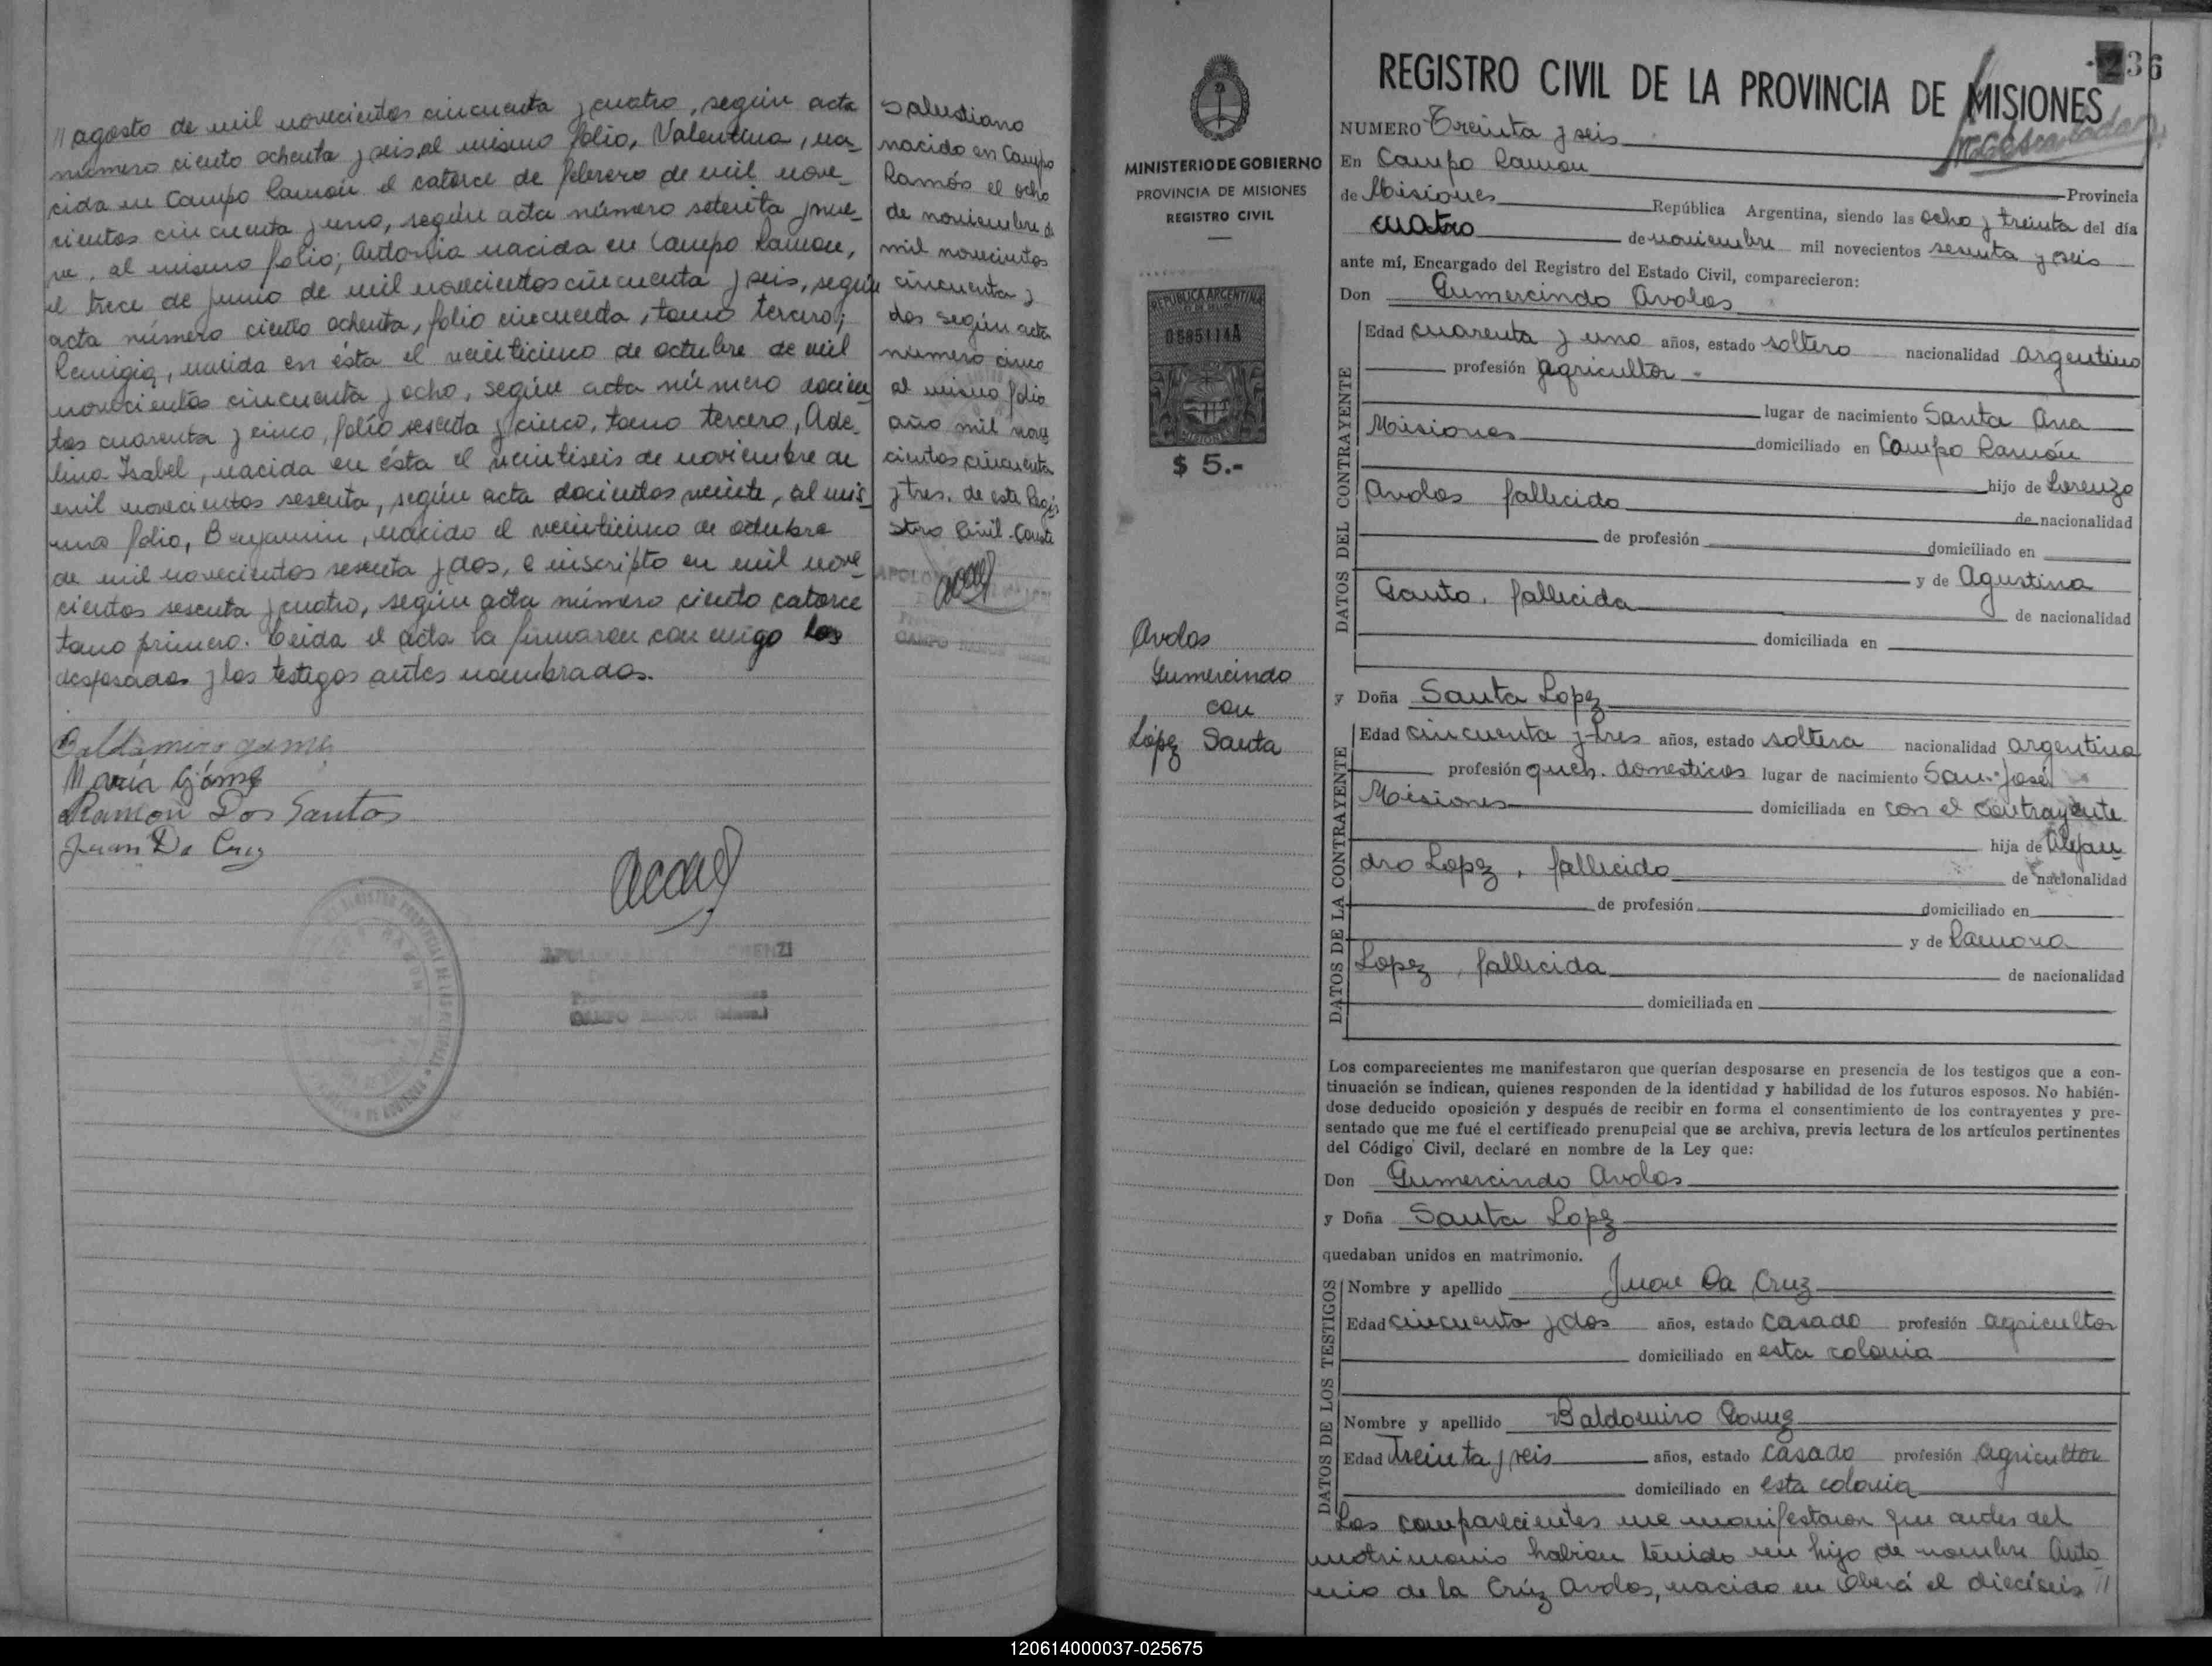 // agosto de mil novecientos cincuenta y cuatro, según acta
número ciento ochenta y seis, al mismo folio, Valentina, na_
cida en Campo Ramón el catorce de febrero de mil nove_
cientos cincuenta y uno, según acta número setenta y nue_
ve, al mismo folio; Antonia nacida en Campo Ramon,
el trece de junio de mil novecientos cincuenta y seis, según
acta número ciento ochenta, folio cincuenta, tomo tercero;
Remigia, nacida en ésta el veinticinco de octubre de mil
novecientos cincuenta y ocho, según acta número docien
tos cuarenta y cinco, folio sesenta y cinco, tomo tercero, Ade_
lina Isabel, nacida en ésta el veintiseis de noviembre de
mil novecientos sesenta, según acta docientos veinte, al mis_
mo folio, Benjamin, nacido el veinticinco de octubre
de mil novecientos sesenta y dos, e inscripto en mil nove_
cientos sesenta y cuatro, según acta número ciento catorce
tomo primero. Leida el acta la firmaron conmigo los
desposados y los testigos antes nombrados.
Saludiano
nacido en Campo
Ramón el ocho
de noviembre de
mil novecientos
cincuenta y
dos según acta
número cinco
al mismo folio
año mil nove
cientos cincuenta
y tres. de este Regis
stro Civil. Conste
María Gómez
Ramon Dos Santos
Juan Da Cruz
CAMPO RAMON
236
REGISTRO CIVIL DE LA PROVINCIA DE MISIONES
MINISTERIO DE GOBIERNO
PROVINCIA DE MISIONES
REGISTRO CIVIL
REPUBLICA ARGENTINA
0685114A
MISIONES
$ 5.-
Avalos
Gumercindo
con
López Santa
NUMERO Treinta y seis
En Campo Ramon
Provincia
de Misiones República Argentina, siendo las ocho y treinta del día
cuatro de noviembre mil novecientos sesenta y seis
ante mí, Encargado del Registro del Estado Civil, comparecieron:
Don Gumercindo Avalos
DATOS DEL CONTRAYENTE
Edad cuarenta y uno años, estado soltero nacionalidad argentino
profesión agricultor
lugar de nacimiento Santa Ana
Misiones domiciliado en Campo Ramón
hijo de Lorenzo
Avalos fallecido de nacionalidad
de profesión domiciliado en
y de Agustina
Gauto, fallecida de nacionalidad
domiciliada en
y Doña Santa Lopez
DATOS DE LA CONTRAYENTE
Edad cincuenta y tres años, estado soltera nacionalidad argentina
profesión queh. domesticos lugar de nacimiento San José
Misiones domiciliada en con el contrayente
hija de Alejan_
dro Lopez, fallecido de nacionalidad
de profesión domiciliado en
y de Ramona
Lopez, fallecida de nacionalidad
domiciliada en
Los comparecientes me manifestaron que querían desposarse en presencia de los testigos que a con-
tinuación se indican, quienes responden de la identidad y habilidad de los futuros esposos. No habién-
dose deducido oposición y después de recibir en forma el consentimiento de los contrayentes y pre-
sentado que me fué el certificado prenupcial que se archiva, previa lectura de los artículos pertinentes
del Código Civil, declaré en nombre de la Ley que:
Don Gumercindo Avalos
y Doña Santa Lopez
quedaban unidos en matrimonio.
DATOS DE LOS TESTIGOS
Nombre y apellido Juan Da Cruz
Edad cincuenta y dos años, estado casado profesión agricultor
domiciliado en esta colonia
Nombre y apellido Baldomiro Gomez
Edad treinta y seis años, estado casado profesión agricultor
domiciliado en esta colonia
Los comparecientes me manifestaron que antes del
matrimonio habian tenido un hijo de nombre Anto_
nio de la Crúz Avalos, nacido en Oberá el dieciseis //
120614000037-025675